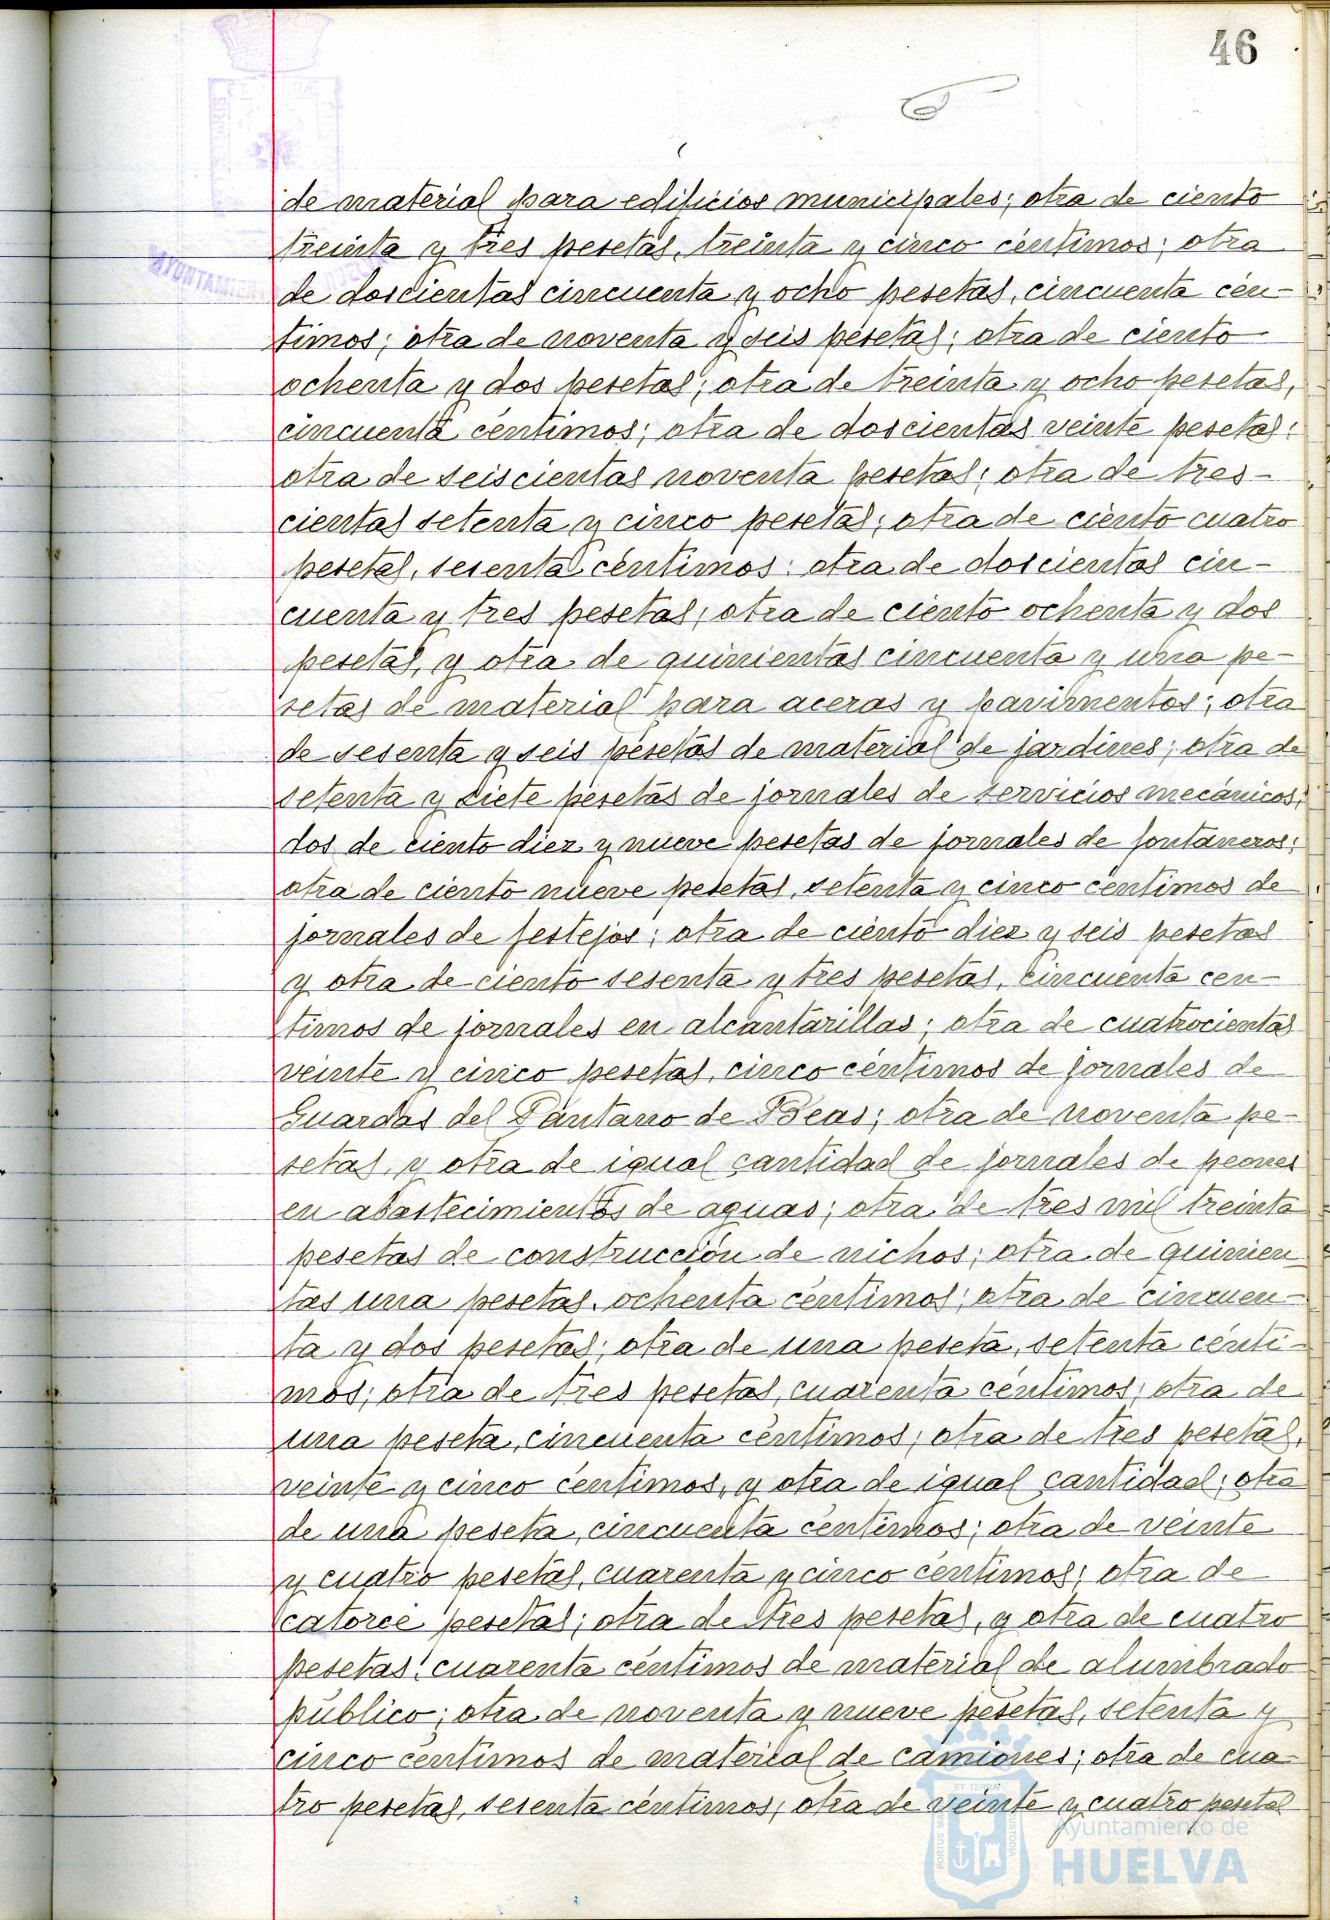 46
de material para edificios municipales; otra de ciento
treinta y tres pesetas, treinta y cinco céntimos; otra
de doscientas cincuenta y ocho pesetas, cincuenta cén-
timos; otra de noventa y seis pesetas; otra de ciento
ochenta y dos pesetas; otra de treinta y ocho pesetas,
cincuenta céntimos; otra de doscientas veinte pesetas;
otra de seiscientas noventa pesetas; otra de tres-
cientas setenta y cinco pesetas; otra de ciento cuatro
pesetas, sesenta céntimos; otra de doscientas cin-
cuenta y tres pesetas; otra de ciento ochenta y dos
pesetas, y otra de quinientas cincuenta y una pe-
setas de material para aceras y pavimentos; otra
de sesenta y seis pesetas de material de jardines; otra de
setenta y siete pesetas de jornales de servicios mecánicos;
dos de ciento diez y nueve pesetas de jornales de fontaneros;
otra de ciento nueve pesetas, setenta y cinco centimos de
jornales de festejos; otra de ciento diez y seis pesetas
y otra de ciento sesenta y tres pesetas, cincuenta cen-
timos de jornales en alcantarillas; otra de cuatrocientas
veinte y cinco pesetas, cinco céntimos de jornales de
Guardas del Pantano de Beas; otra de noventa pe-
setas, y otra de igual cantidad de jornales de peones
en abastecimientos de aguas; otra de tres mil treinta
pesetas de construcción de nichos; otra de quinien-
tas una pesetas, ochenta céntimos; otra de cincuen-
ta y dos pesetas; otra de una peseta, setenta cénti-
mos; otra de tres pesetas, cuarenta céntimos; otra de
una peseta, cincuenta céntimos; otra de tres pesetas,
veinte y cinco céntimos, y otra de igual cantidad; otra
de una peseta, cincuenta céntimos; otra de veinte
y cuatro pesetas, cuarenta y cinco céntimos; otra de
catorce pesetas; otra de tres pesetas, y otra de cuatro
pesetas, cuarenta céntimos de material de alumbrado
público; otra de noventa y nueve pesetas, setenta y
cinco céntimos de material de camiones; otra de cua-
tro pesetas, sesenta céntimos; otra de veinte y cuatro pesetas
Ayuntamiento de
HUELVA